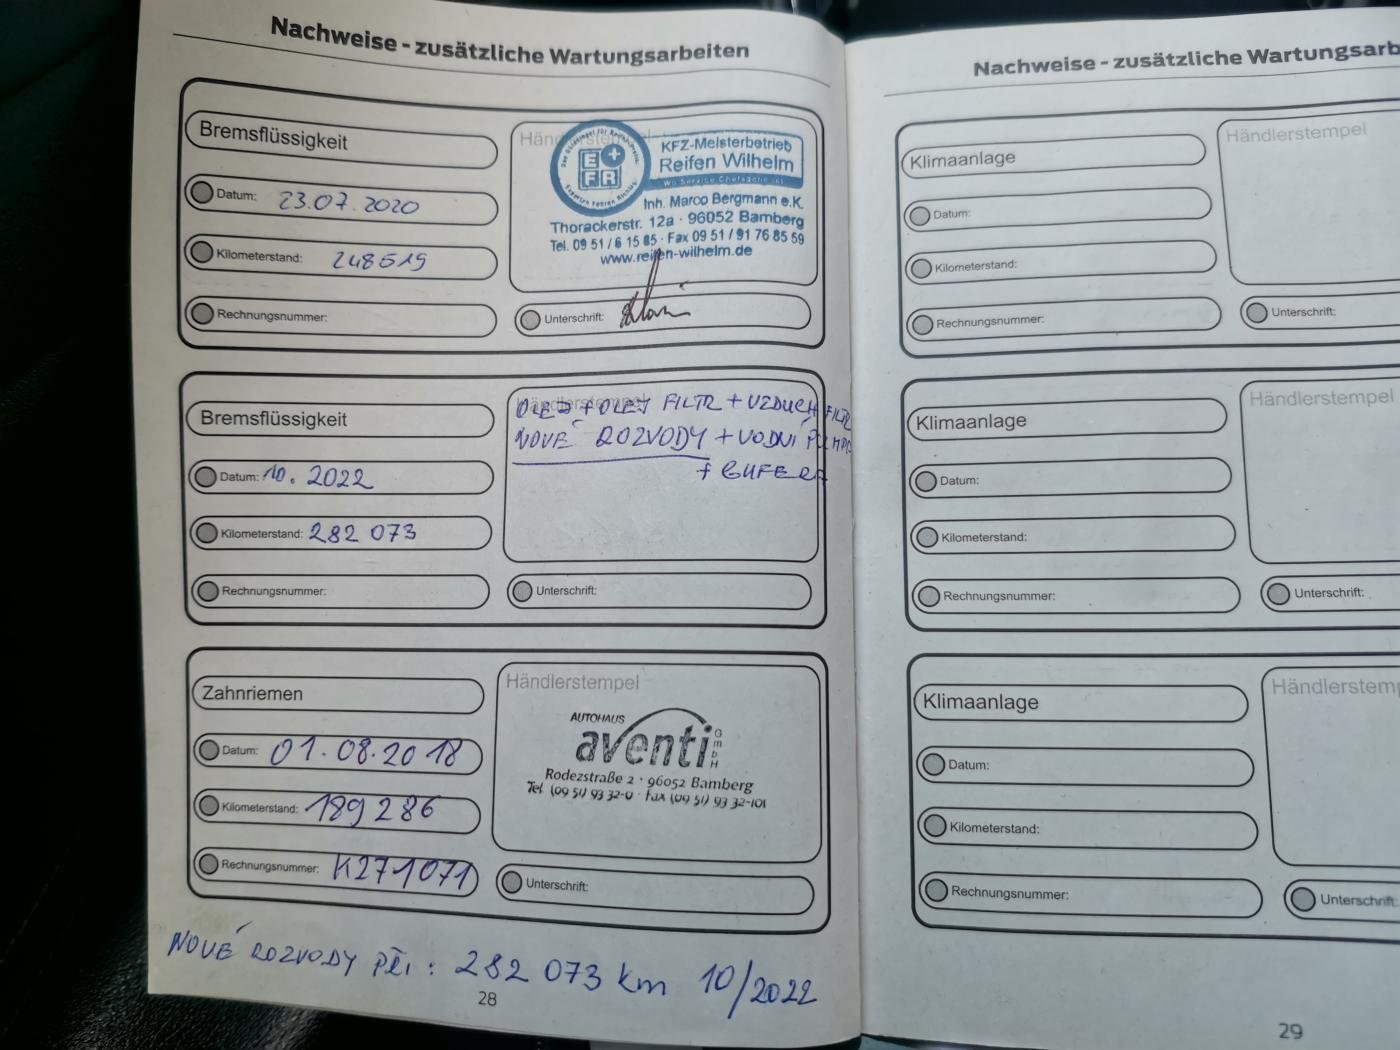 Nachweise - zusätzliche Wartungsarbeiten
Bremsflüssigkeit
Datum: 23.07.2020
Kilometerstand: 248519
Rechnungsnummer:
Händlerstempel
E+FR
KFZ-Meisterbetrieb
Reifen Wilhelm
Wo Service Chefsache ist
Inh. Marco Bergmann e.K.
Thorackerstr. 12a · 96052 Bamberg
Tel. 09 51 / 6 15 85 · Fax 09 51 / 91 76 85 59
www.reifen-wilhelm.de
Unterschrift:
Bremsflüssigkeit
Datum: 10. 2022
Kilometerstand: 282 073
Rechnungsnummer:
Händlerstempel
OLEJ + OLEJ FILTR + VZDUCH FILTR
NOVÉ ROZVODY + VODNÍ PUMPA
+ GUFERA
Unterschrift:
Zahnriemen
Datum: 01.08.2018
Kilometerstand: 189 286
Rechnungsnummer: K271071
Händlerstempel
AUTOHAUS
aventi GmbH
Rodezstraße 2 · 96052 Bamberg
Tel. (09 51) 93 32-0 · Fax (09 51) 93 32-101
Unterschrift:
NOVÉ ROZVODY PŘI : 282 073 km 10/2022
28
Nachweise - zusätzliche Wartungsarb
Klimaanlage
Datum:
Kilometerstand:
Rechnungsnummer:
Händlerstempel
Unterschrift:
Klimaanlage
Datum:
Kilometerstand:
Rechnungsnummer:
Händlerstempel
Unterschrift:
Klimaanlage
Datum:
Kilometerstand:
Rechnungsnummer:
Händlerstemp
Unterschrift:
29